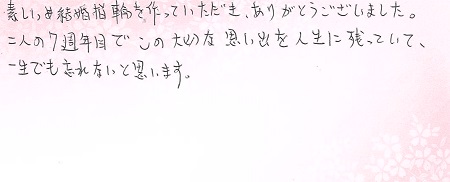 素しいめ結婚指輪を作っていただき、ありがとうございました。
二人の7週年目でこの大切な思い出を人生に残っていて、
一生でも忘れないと思います。